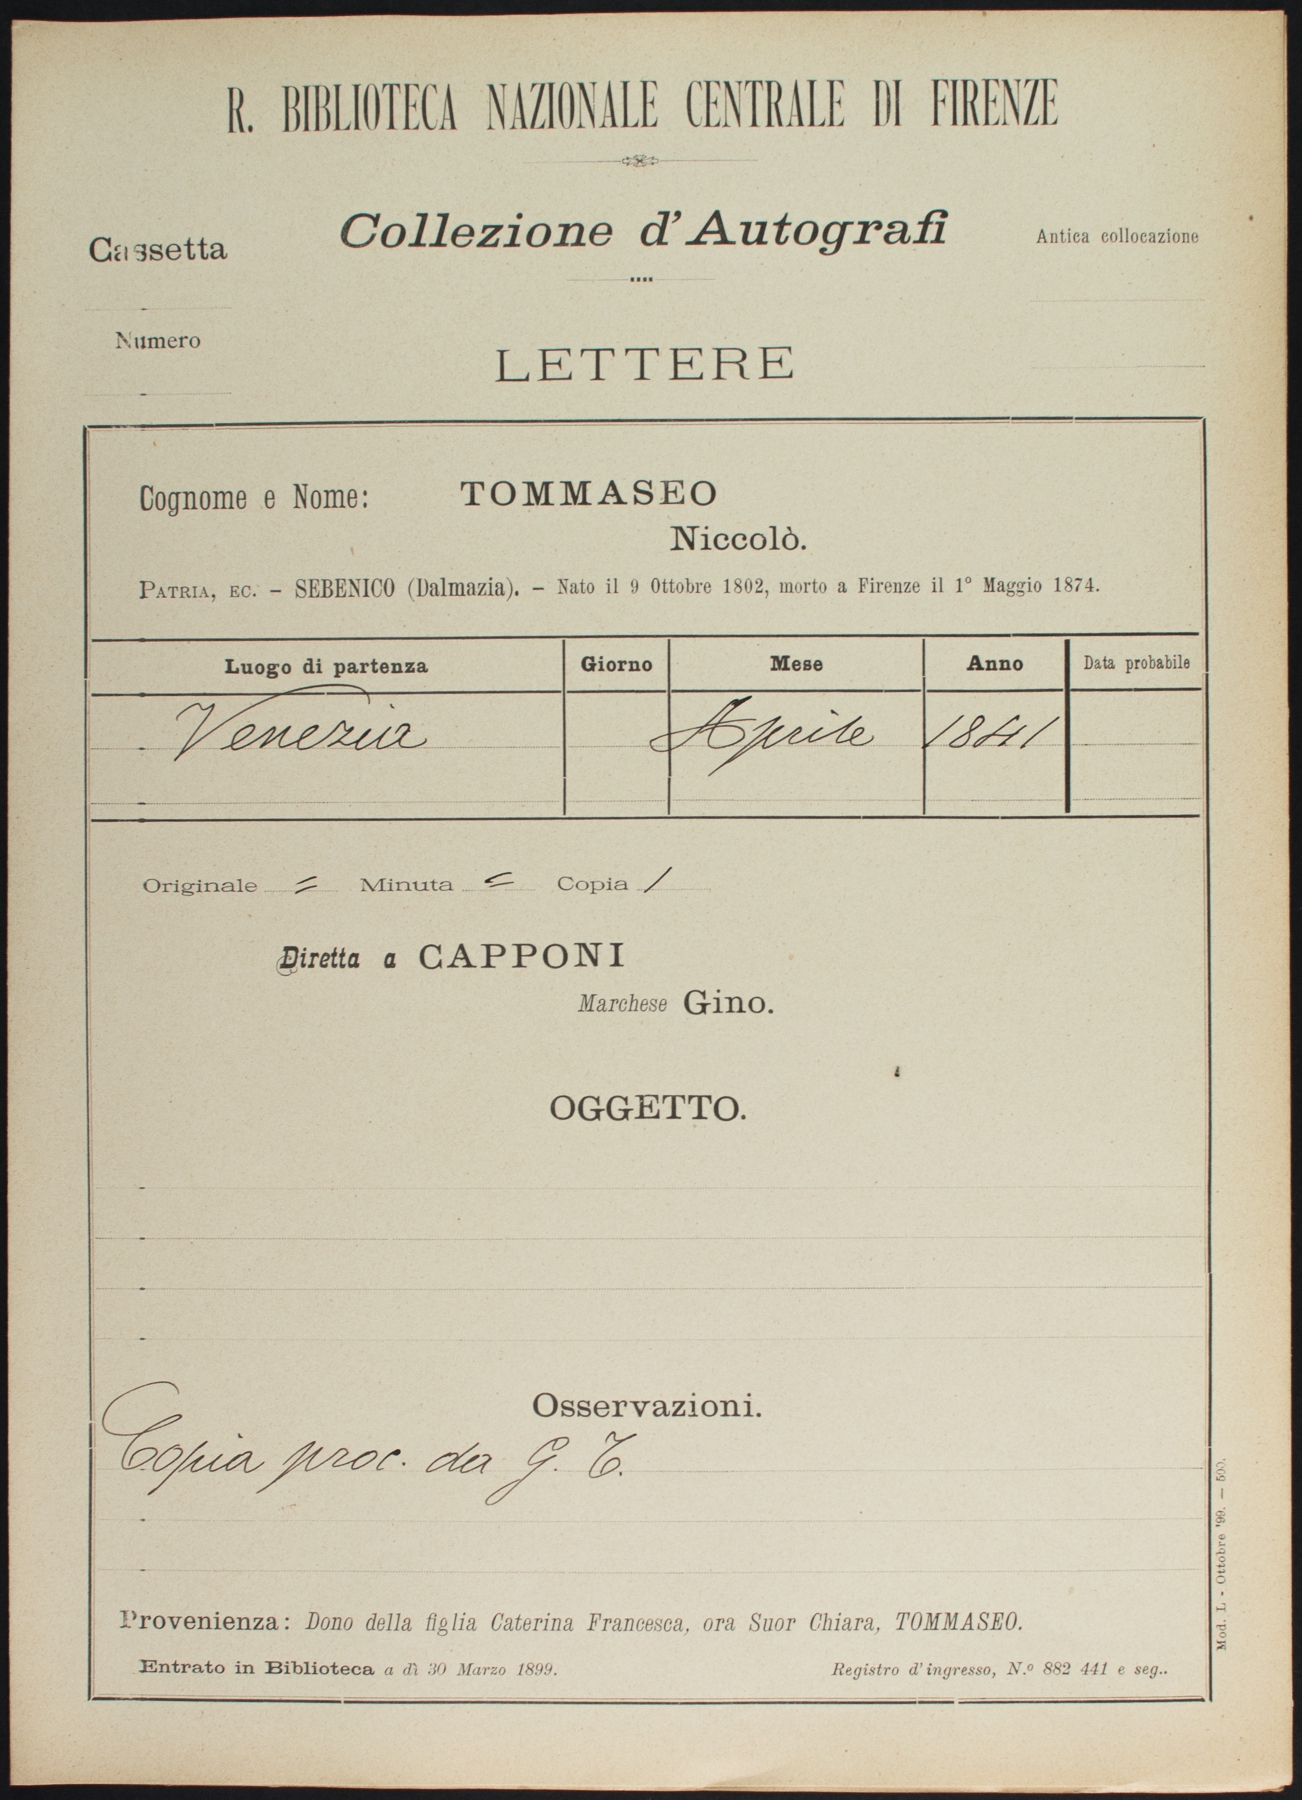 R. BIBLIOTECA NAZIONALE CENTRALE DI FIRENZE
Cassetta
Collezione d'Autografi
Antica collocazione
Numero
LETTERE
Cognome e Nome: TOMMASEO
Niccolò.
PATRIA, EC. – SEBENICO (Dalmazia). – Nato il 9 Ottobre 1802, morto a Firenze il 1° Maggio 1874.
Luogo di partenza Giorno Mese Anno Data probabile
Venezia Aprile 1841
Originale = Minuta = Copia /
Diretta a CAPPONI
Marchese Gino.
OGGETTO.
Osservazioni.
Copia proc. da G. T.
Provenienza: Dono della figlia Caterina Francesca, ora Suor Chiara, TOMMASEO.
Entrato in Biblioteca a dì 30 Marzo 1899. Registro d'ingresso, N.º 882 441 e seg..
Mod. L - Ottobre '99. — 500.